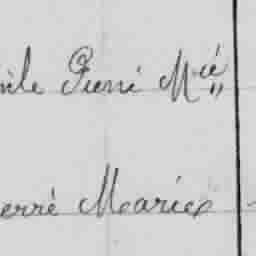 ile Pierre Mié
erré Mariée